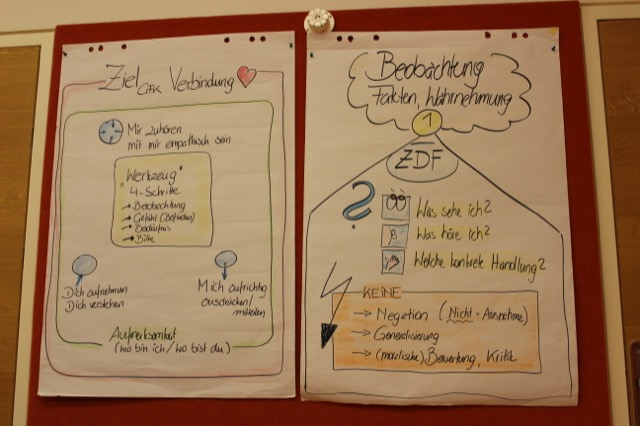 Ziel GFK Verbindung
Mir zuhören
mit mir empathisch sein
"Werkzeug"
4-Schritte
→ Beobachtung
→ Gefühl (Befinden)
→ Bedürfnis
→ Bitte
Dich aufnehmen
Dich verstehen
Mich aufrichtig
ausdrücken/
mitteilen
Aufmerksamkeit
(wo bin ich / wo bist du)
Beobachtung
Fakten, Wahrnehmung
1
ZDF
?
Was sehe ich?
Was höre ich?
Welche konkrete Handlung?
KEINE
→ Negation (Nicht-Ausnahme)
→ Generalisierung
→ (moralische) Bewertung, Kritik